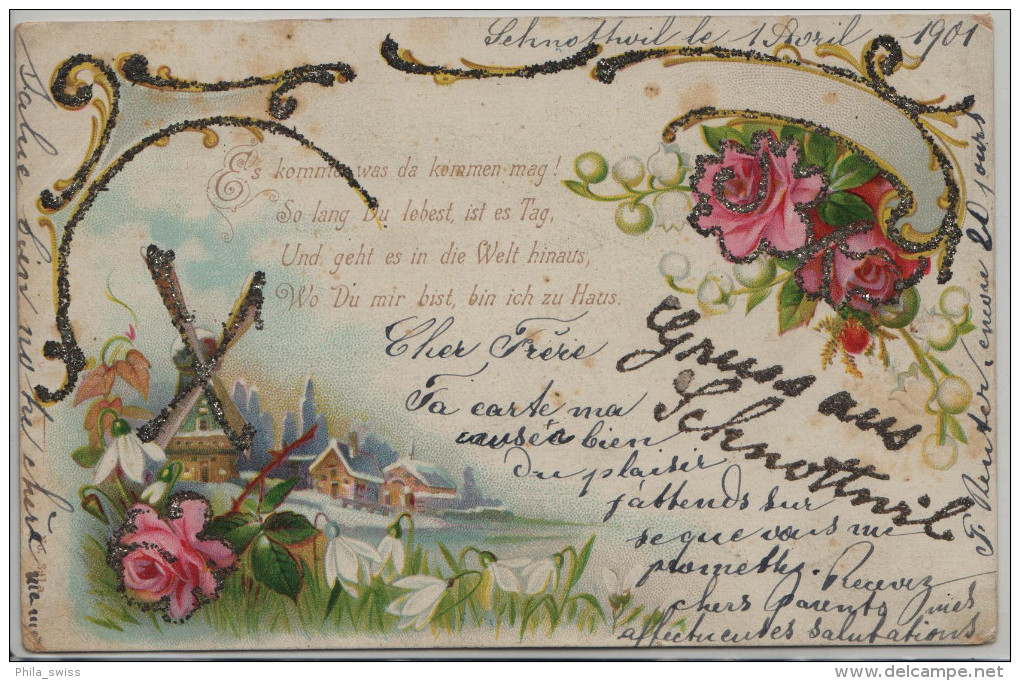 Schnottwil le 1 Avril 1901
Es komme was da kommen mag!
So lang Du lebest, ist es Tag,
Und geht es in die Welt hinaus,
Wo Du mir bist, bin ich zu Haus.
Gruss aus
Schnottwil
Cher Frère
Ta carte ma
causéa bien
du plaisir
j'attends sur
se que vous mi
promettez. Recevez
chers parents mes
affectueuses salutations
encore 20 jours
Salue bien ma chère
Phila_swiss
www.delcampe.net